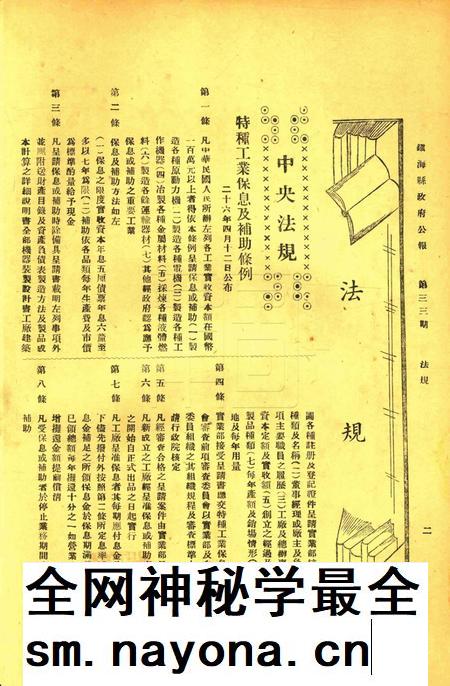 鎮海縣政府公報　第三三期　法規
二
法規
中央法規
特種工業保息及補助條例
二十六年四月十二日公布
第一條　凡中華民國人民所辦左列各工業實收資本額在國幣
一百萬元以上者得依本條例呈請保息或補助(一)製
造各種原動力機(二)製造各種電機(三)製造各種工
作機器(四)冶製各種金屬材料(五)採煉各種液體燃
料(六)製造各種運輸器材(七)其他經政府認爲應予
保息或補助之重要工業
第二條　保息及補助方法如左
(一)保息之限度實收資本年息五厘債票年息六釐至
多以七年爲限(二)補助依各品類每年生產費及市價
爲標準酌量給予現金
第三條　凡呈請保息或補助時除備具呈請書載明左列事項外
並應附送財產目錄及資產負債表製造方法及製品成
本計算之詳細說明書全部機器裝製設計書工廠建築
圖各種註册及登記證件呈請實業部
種類及名稱(二)業事經理或廠主及
項主要職員之履歷(三)工廠及總辦事
資本定額及實收額(五)創立之經過及
製品種類(七)每年產額及銷場情形
地及每年用量
第四條　實業部接受呈請書應交特種工業保息
會審查前項審查委員會以實業部及
委員組織之其組織規程及審查標準
請行政院核定
第五條　凡經審查合格之呈請案件由實業部
第六條　凡新成立之工廠經呈准保息或補助
之開始自正式出品之日起實行
第七條　凡工廠呈准保息者其每期應付息金
下儘先撥付外按照第二條所定息率
息金補足之所領息金於保息期滿
已領總額每年攤還十分之一如營業
增攤還金額提前償清
第八條　凡受保息或補助者於停止業務期間
補助
全网神秘学最全
sm.nayona.cn